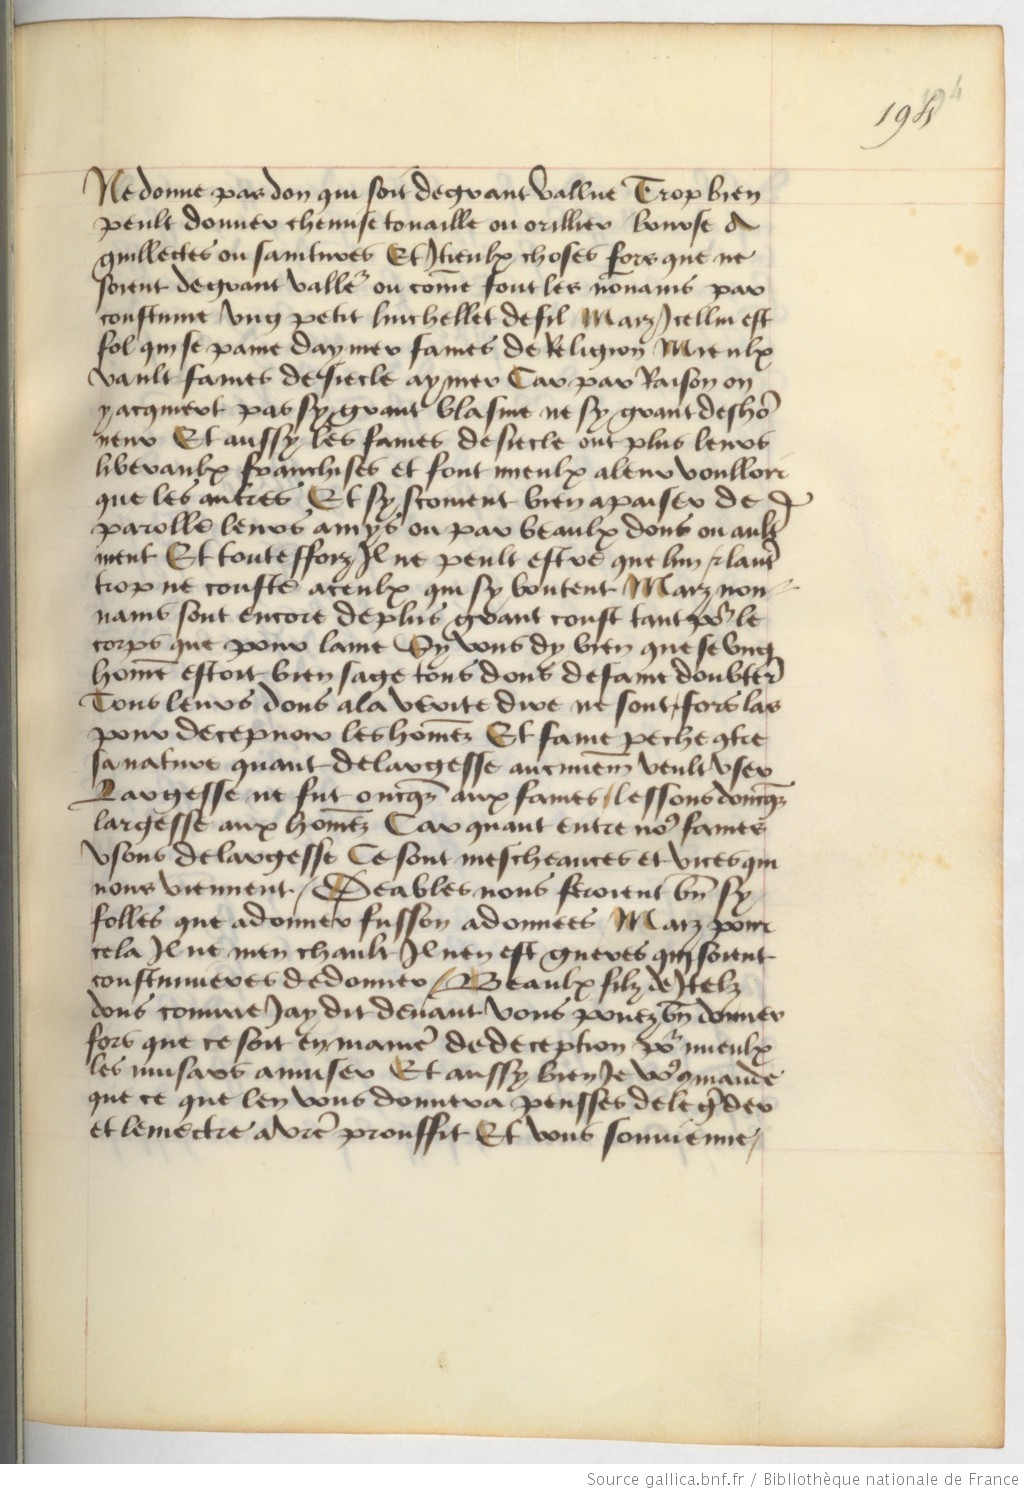 194
Ne donne pas don qui soit de grant vallue Trop bien
peult donner chemise touaille ou orillier bourse
guillectes ou saintures Et Itieulx choses fors que ne
soient de grant valler ou come font les nonains par
constume ung petit luichellet de fil Marz Icellui est
fol qui se paine daymer fames de Religion Mieulx
vault fames de siecle aymer Car par Raison on
y acquiert pas sy grant blasme ne sy grant desho
neur Et aussy les fames de siecle ont plus leurs
liberaulx franchises et font mieulx a leur voulloir
que les autres Et sy scovent bien apaiser de
parolle leurs amys ou par beaulx dons ou ault
ment Et toutesfforz Il ne peult estre que lun
trop ne couste a ceulx qui sy boutent Marz non
nains sont encore de plus grant coust tant por le
corps que pour lame Sy vous dy bien que se ung
home estoit bien sage tous dons de fame doubter
Tous leurs dons a la verite dire ne sont fors las
pour decepvoir les homez Et fame peche contre
sa nature quant de largesse aucunem veult user
Largesse ne fut oncq aux fames lessons doncq
largesse aux homez Car quant entre nos fames
usons de largesse Ce sont mescheances et vices qui
nous viennent / Deables nous feroient bn sy
folles que a donner fusson adonnees Marz pour
cela Il ne men chault Il nen est gueres qui soient
constumieres de donner / Beaulx filz de Itelz
dons comme Jay dit devant vous povez bn donner
fors que ce soit en manie de deception por mieulx
les musars amuser Et aussy bien Je vos comande
que ce que len vous donnera pensses de le garder
et le mectre a vre prouffit Et vous souvienne /
Source gallica.bnf.fr / Bibliothèque nationale de France